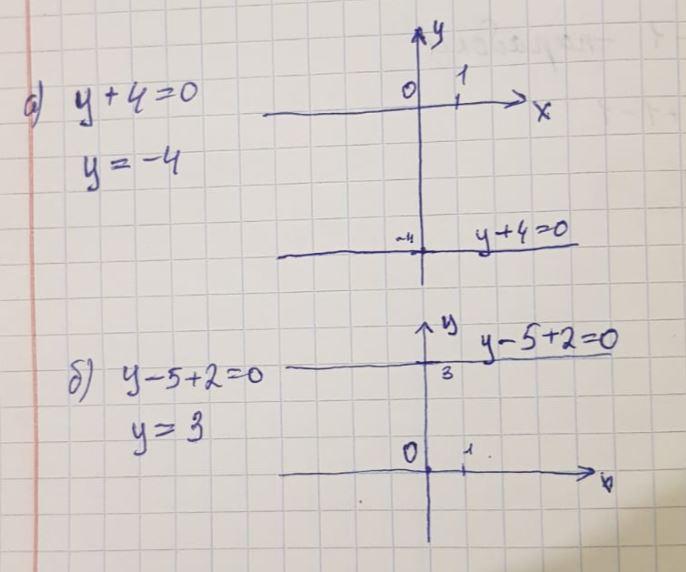 а) y+4=0
y=-4
y
0 1
x
-4 y+4=0
б) y-5+2=0
y=3
y
y-5+2=0
3
0 1